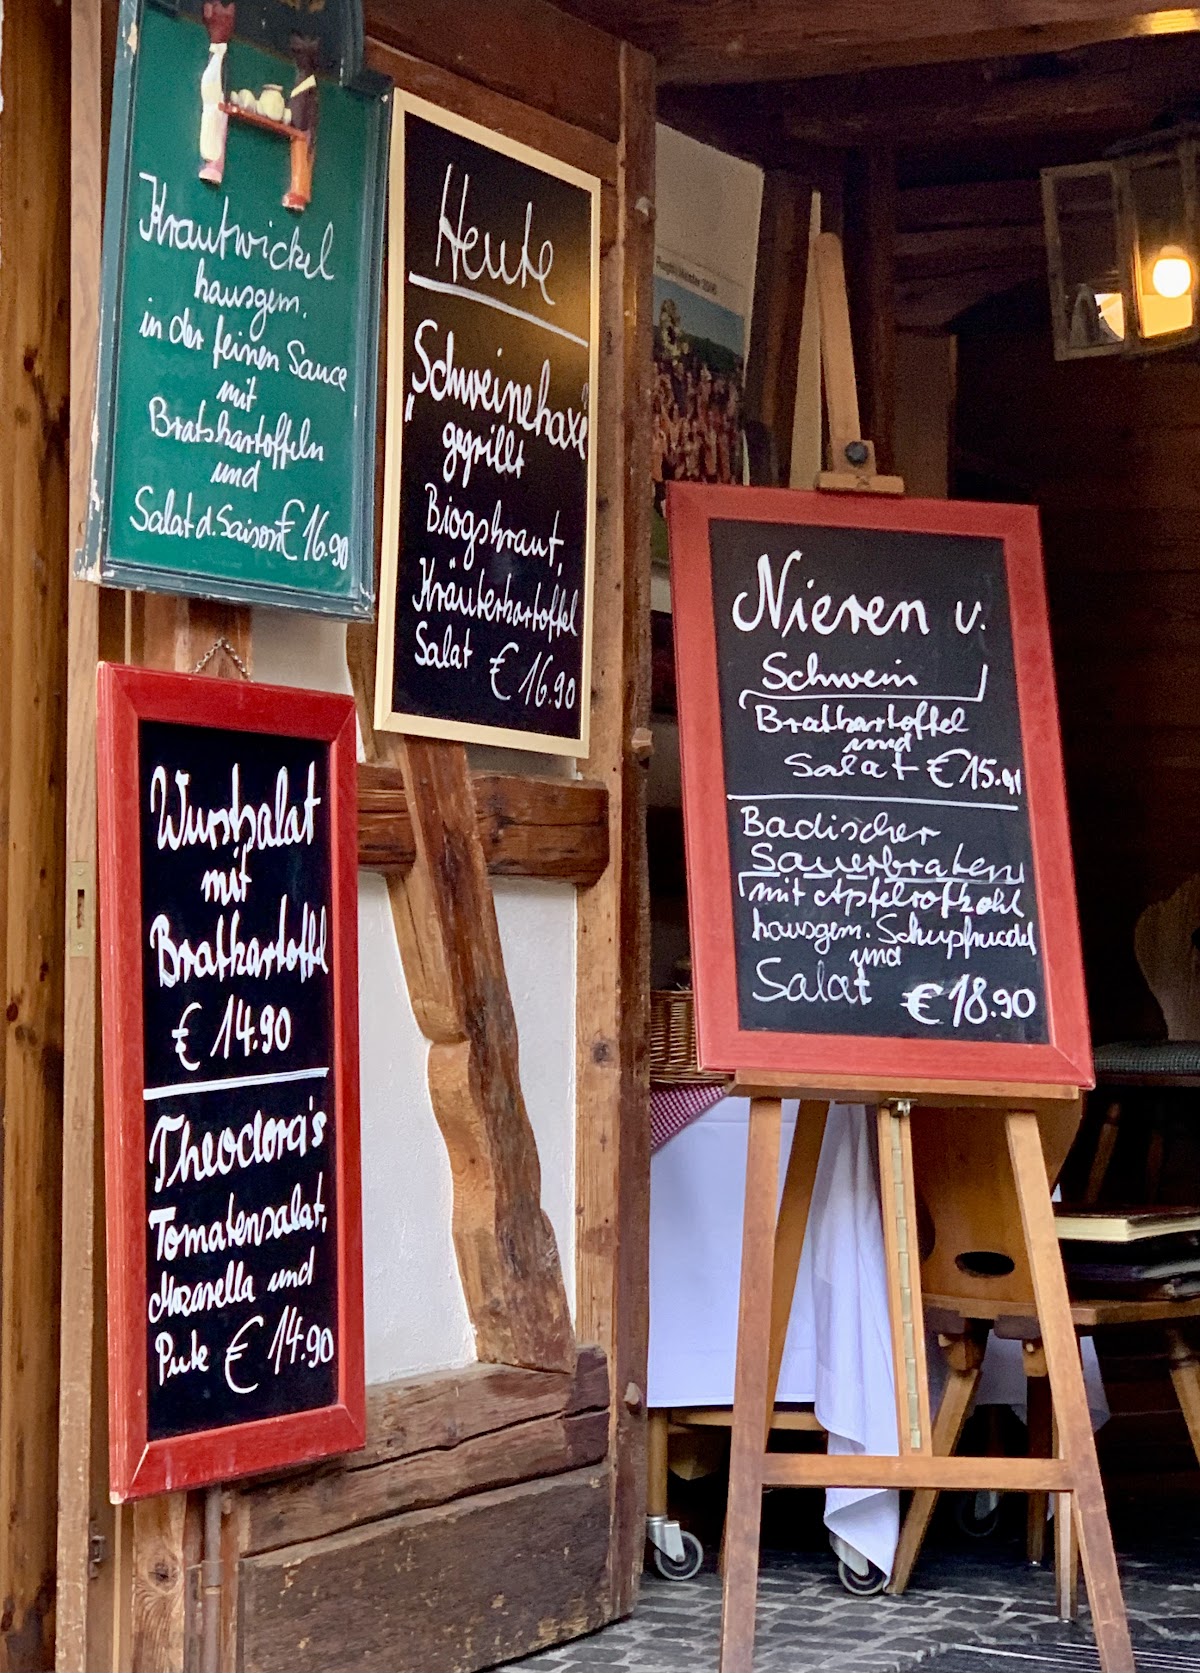 Krautwickel
hausgem.
in der feinen Sauce
mit
Bratkartoffeln
und
Salat d. Saison € 16.90
Heute
Schweinehaxe
gegrillt
Kräuterkartoffel
Salat € 16.90
Wurstsalat
mit
Bratkartoffel
€ 14.90
Theodora's
Tomatensalat,
Mozarella und
Pute € 14.90
Nieren v.
Schwein
Bratkartoffel
und
Salat
Badischer
Sauerbraten
mit Apfelrotkohl
hausgem. Schupfnudel
und
Salat € 18.90